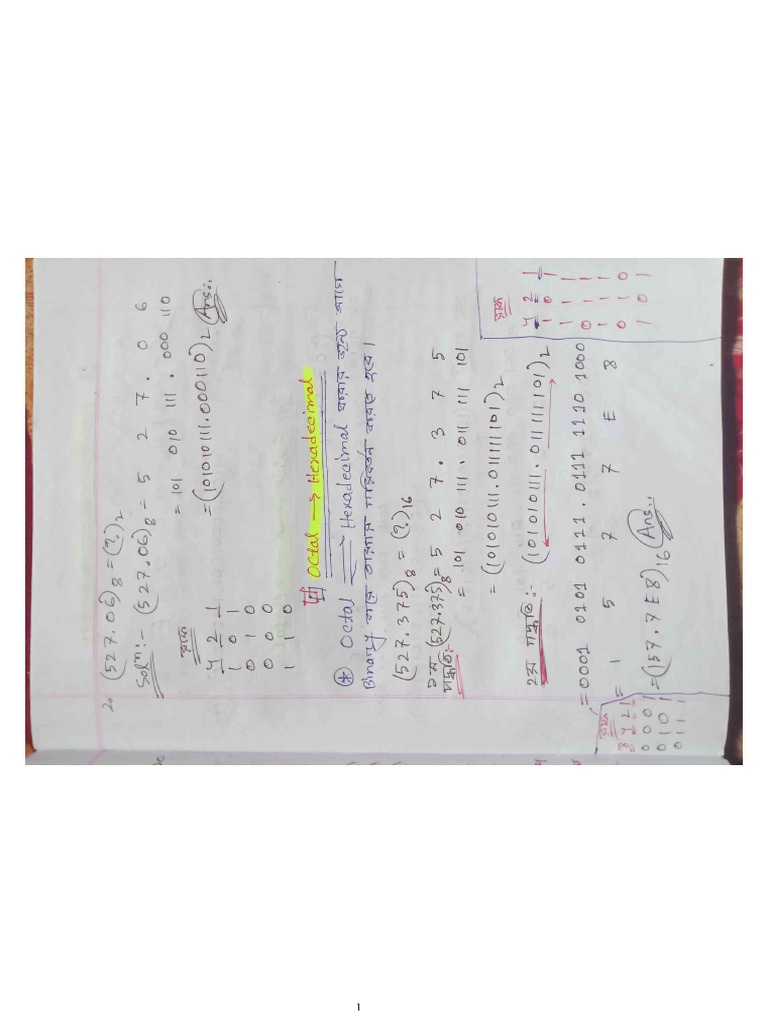 2. (527.06)₈ = (?)₂
Solⁿ:- (527.06)₈ = 5 2 7 . 0 6
= 101 010 111 . 000 110
= (101010111.000110)₂ Ans..
4 2 1
1 0 1
0 1 0
0 0 0
1 1 0
Octal → Hexadecimal
* Octal → Hexadecimal করার জন্য আগে
Binary তে তারপর পরিবর্তন করতে হবে।
(527.375)₈ = (?)₁₆
১ম পদ্ধতি:- (527.375)₈ = 5 2 7 . 3 7 5
= 101 010 111 . 011 111 101
= (101010111.011111101)₂
২য় পদ্ধতি:- (101010111.011111101)₂
4 2 1
1 0 1
1 1 1
0 1 1
1 1 0
1 0 1
= 0001 0101 0111 . 0111 1110 1000
= 1 5 7 7 E 8
= (157.7E8)₁₆ Ans..
8 4 2 1
0 0 0 1
0 1 0 1
0 1 1 1
1